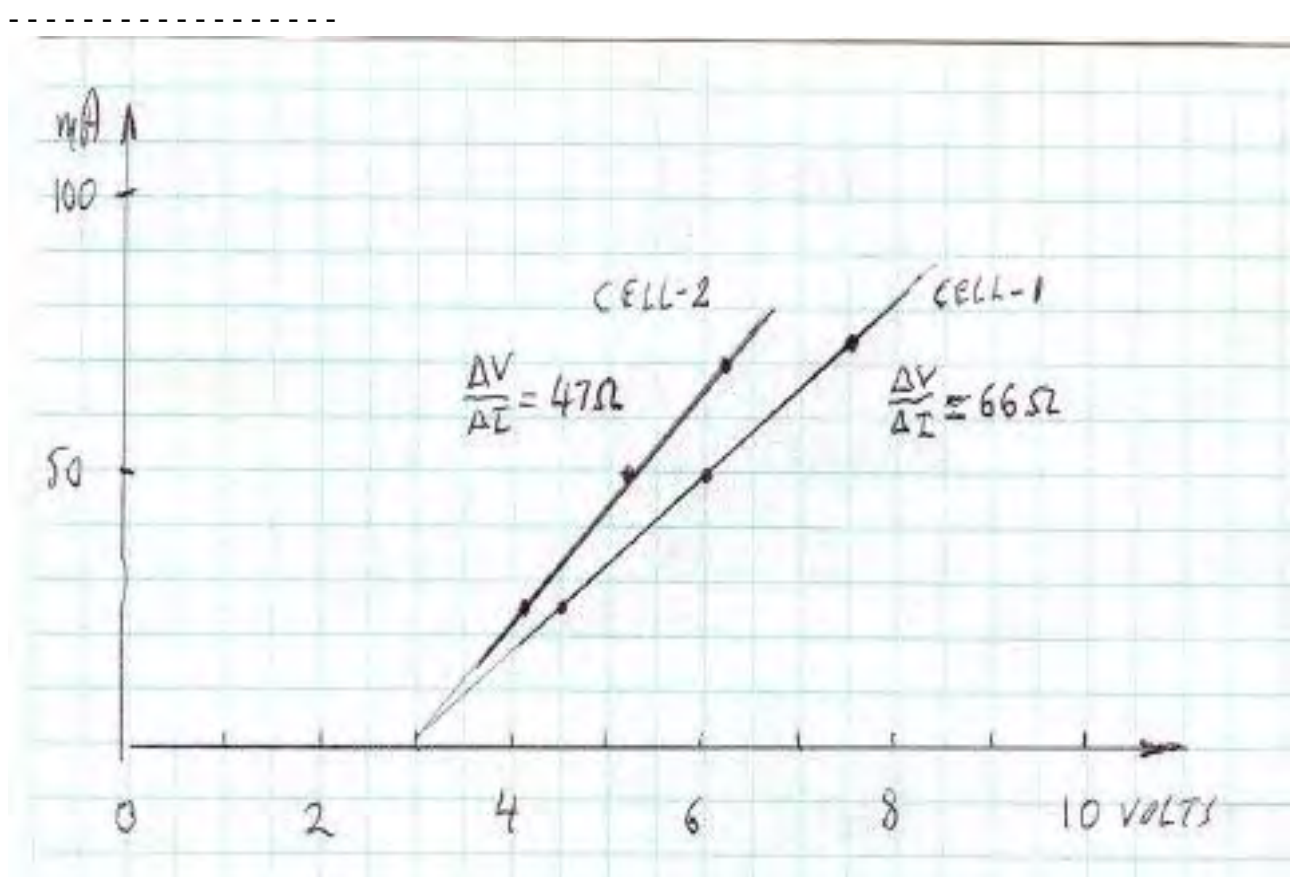 - - - - - - - - - - - - - - - - - -
mA
100
CELL-2
CELL-1
ΔV/ΔI = 47Ω
ΔV/ΔI = 66Ω
50
0 2 4 6 8 10 VOLTS